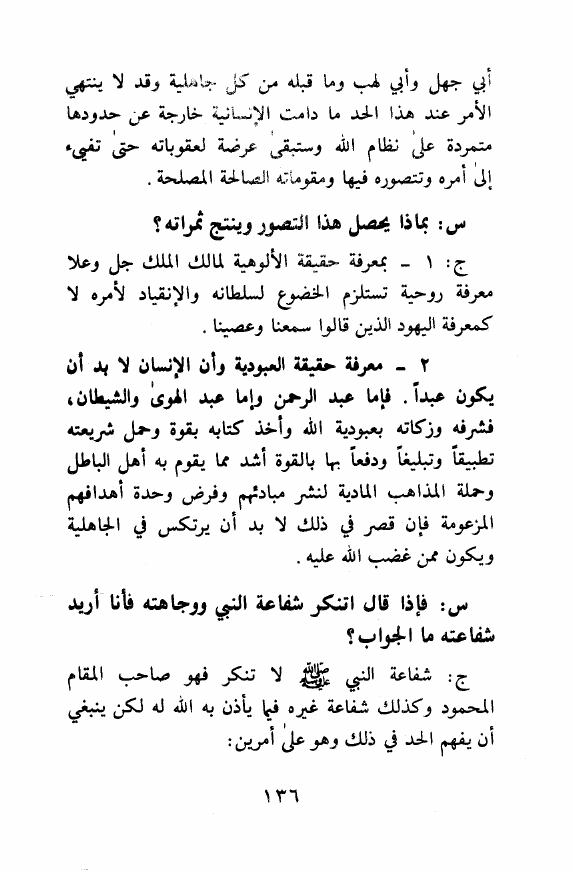 أبي جهل وأبي لهب وما قبله من كل جاهلية وقد لا ينتهي
الأمر عند هذا الحد ما دامت الإنسانية خارجة عن حدودها
متمردة علىٰ نظام الله وستبقىٰ عرضة لعقوباته حتىٰ تفيء
إلىٰ أمره وتتصوره فيها ومقوماته الصالحة المصلحة .
س: بماذا يحصل هذا التصور وينتج ثمراته؟
ج: ١ ـ بمعرفة حقيقة الألوهية لمالك الملك جل وعلا
معرفة روحية تستلزم الخضوع لسلطانه والإنقياد لأمره لا
كمعرفة اليهود الذين قالوا سمعنا وعصينا .
٢ ـ معرفة حقيقة العبودية وأن الإنسان لا بد أن
يكون عبداً . فإما عبد الرحمن وإما عبد الهوىٰ والشيطان،
فشرفه وزكاته بعبودية الله وأخذ كتابه بقوة وحمل شريعته
تطبيقاً وتبليغاً ودفعاً بها بالقوة أشد مما يقوم به أهل الباطل
وحملة المذاهب المادية لنشر مبادئهم وفرض وحدة أهدافهم
المزعومة فإن قصر في ذلك لا بد أن يرتكس في الجاهلية
ويكون ممن غضب الله عليه .
س: فإذا قال اتنكر شفاعة النبي ووجاهته فأنا أريد
شفاعته ما الجواب؟
ج: شفاعة النبي ﷺ لا تنكر فهو صاحب المقام
المحمود وكذلك شفاعة غيره فيما يأذن به الله له لكن ينبغي
أن يفهم الحد في ذلك وهو علىٰ أمرين:
١٣٦